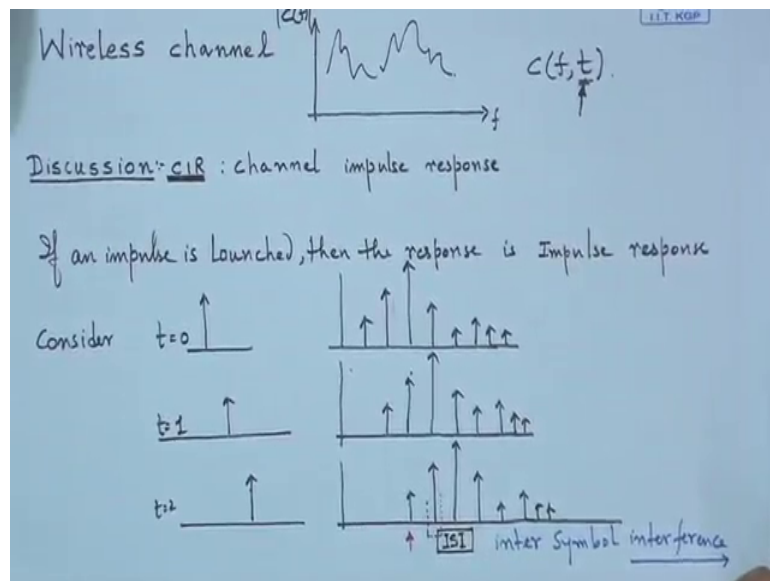 IIT KGP
|C(f)|
Wireless channel
f
C(f,t).
Discussion:- CIR : channel impulse response
If an impulse is Lounched, then the response is Impulse response
Consider t=0
t=1
t=2
ISI inter symbol interference